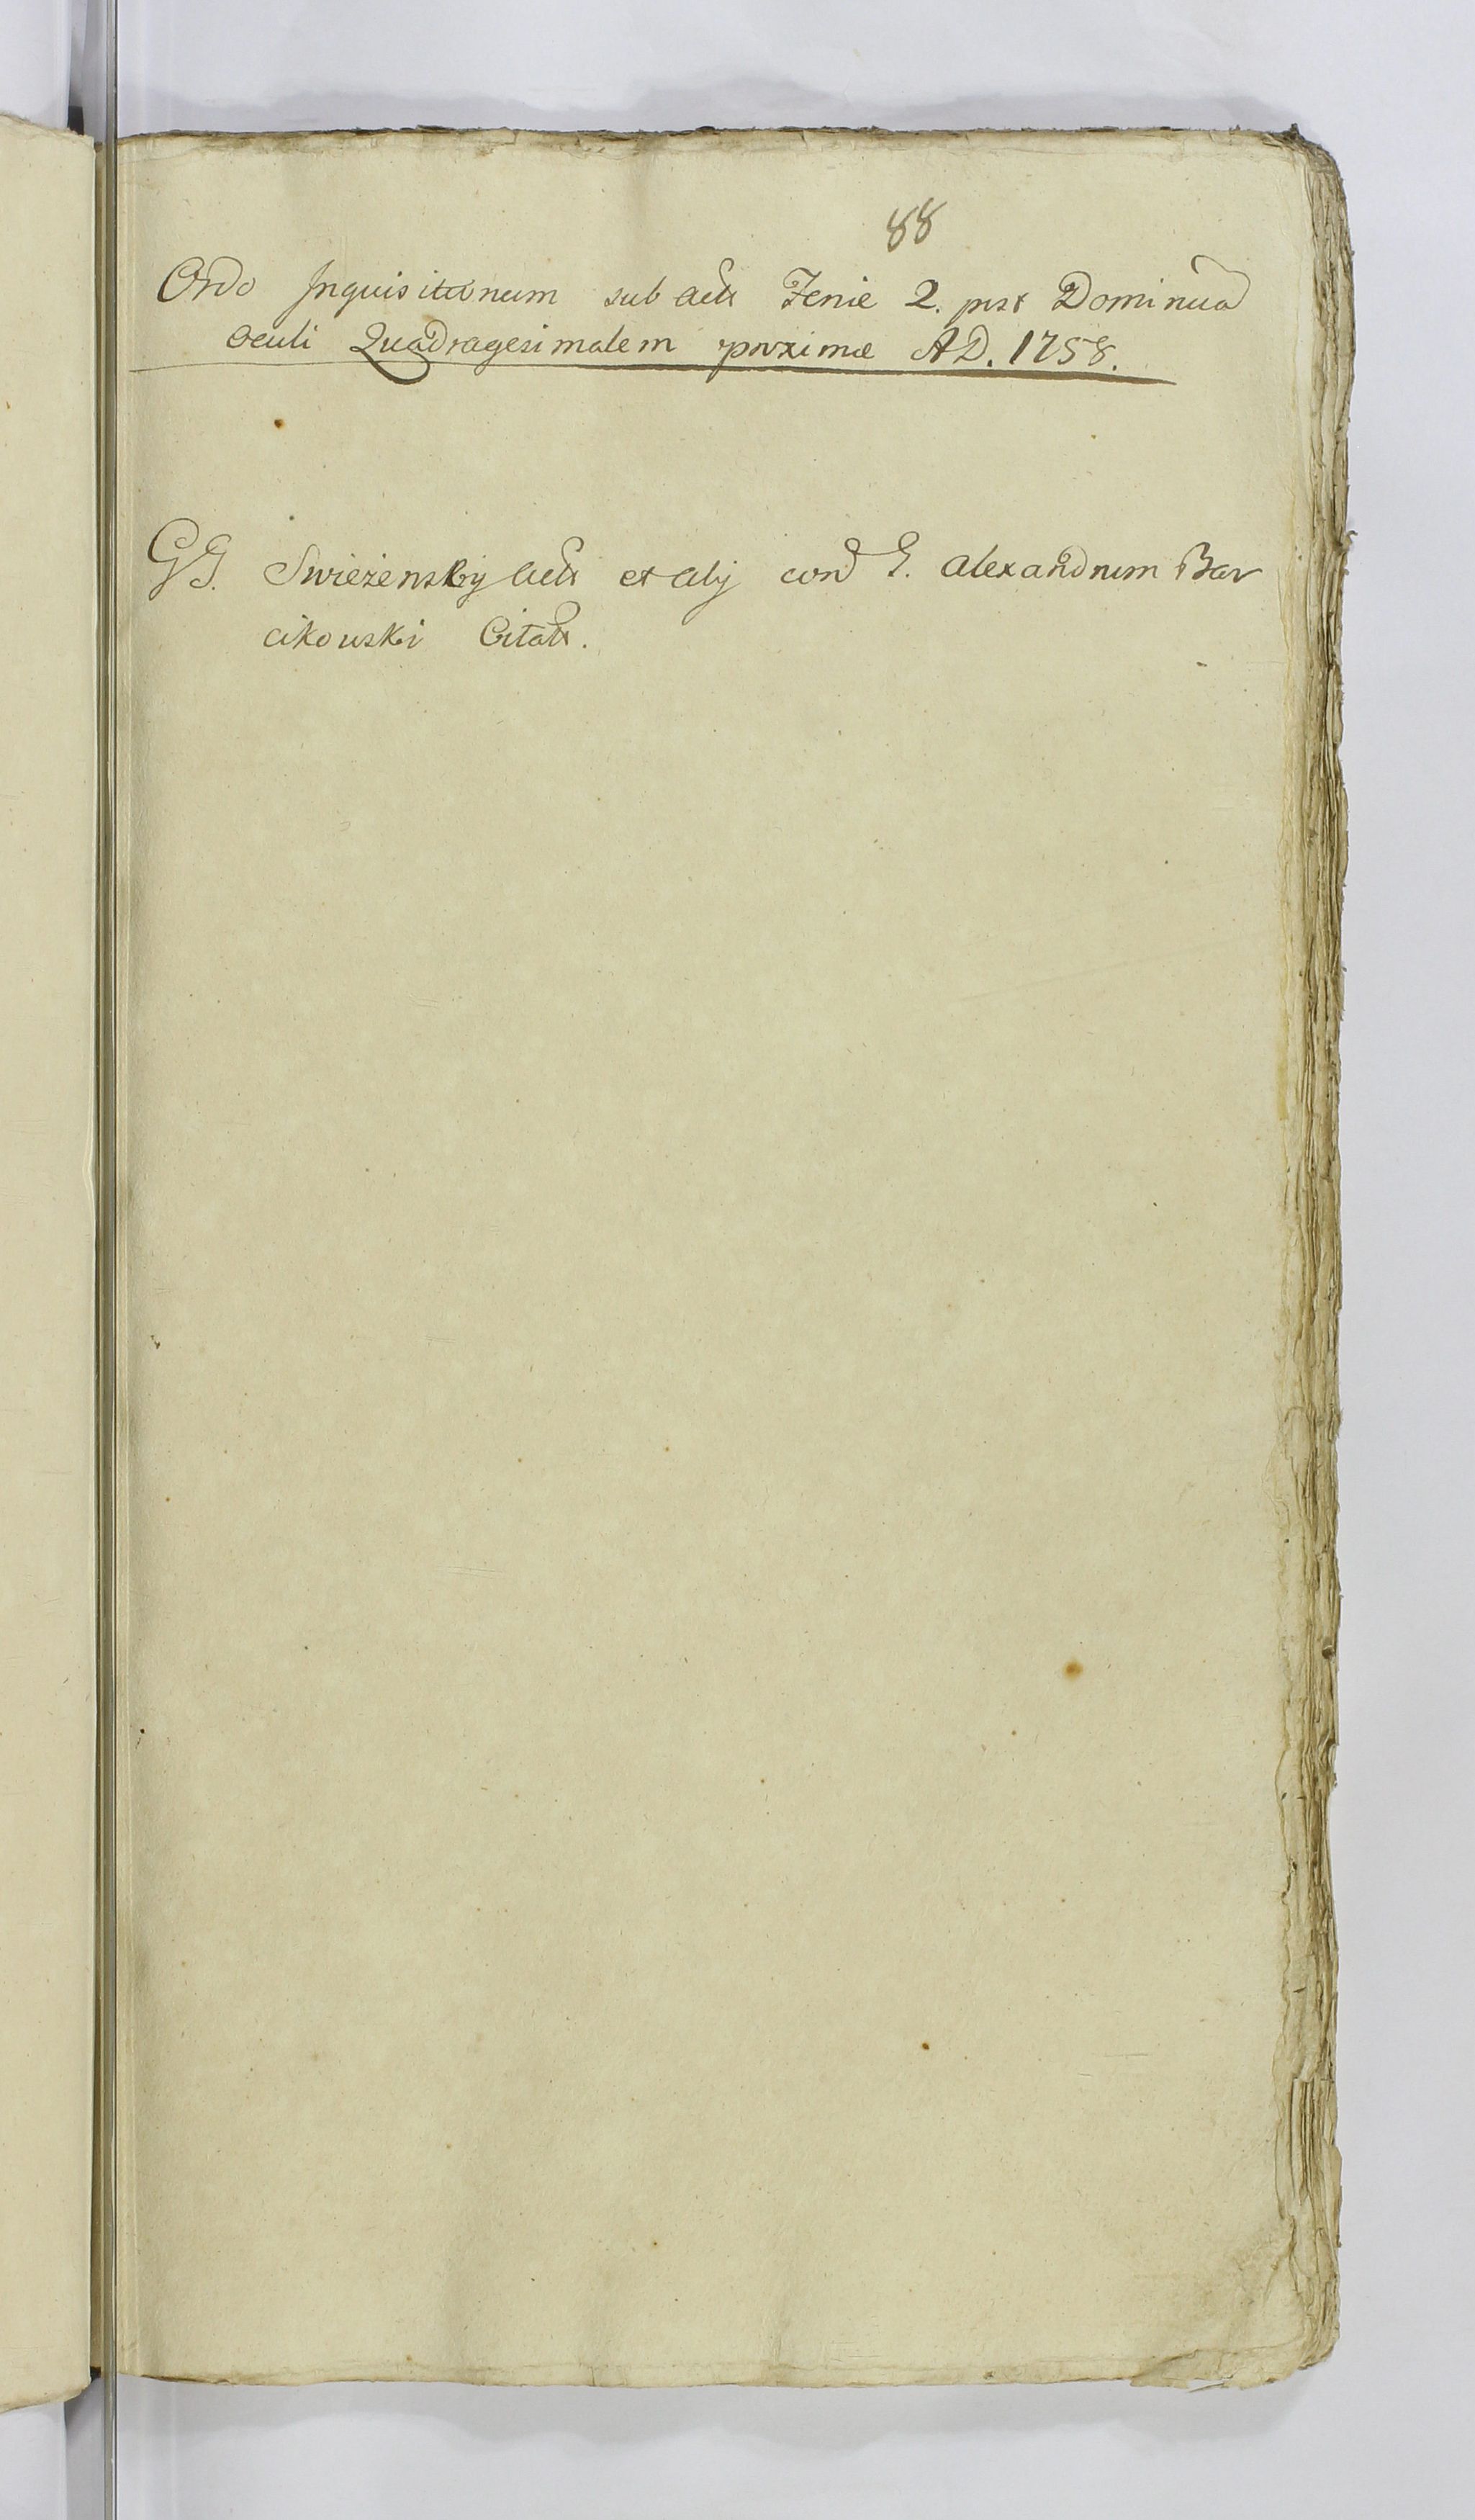 88
Ordo Inquisitionum sub act Feriæ 2. post Dominicā
Oculi Quadragesimalem proximæ AD. 1758.
GG. Swiezenskij act et alij con G. Alexandrum Bar
cikowski Citat.